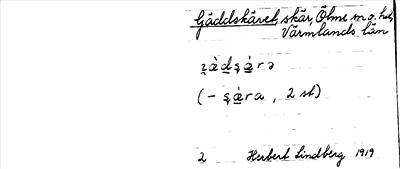 Gäddskäret, skär, Ölme sn o. hd,
Värmlands län
(– , 2 st)
2 Herbert Lindberg 1919